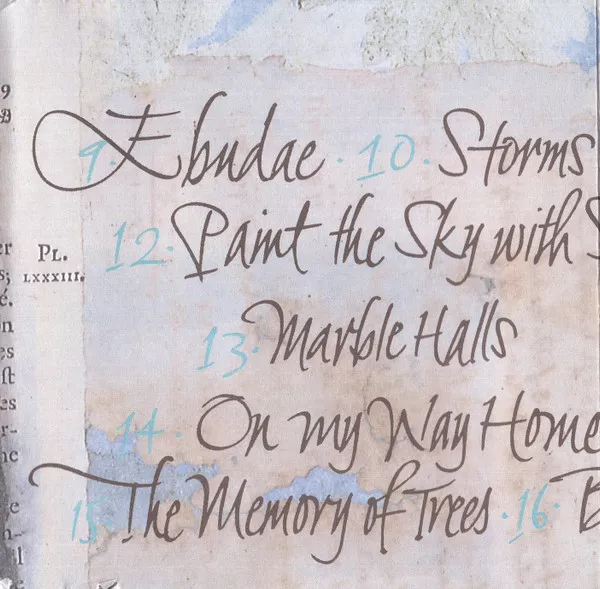 9
9. Ebudae · 10. Storms
12. Paint the Sky with S
er
PL.
s;
LXXXIII.
é.
on
13. Marble Halls
es
ſt
es
14. On my Way Home
r-
he
15. The Memory of Trees · 16. B
e
n-
l